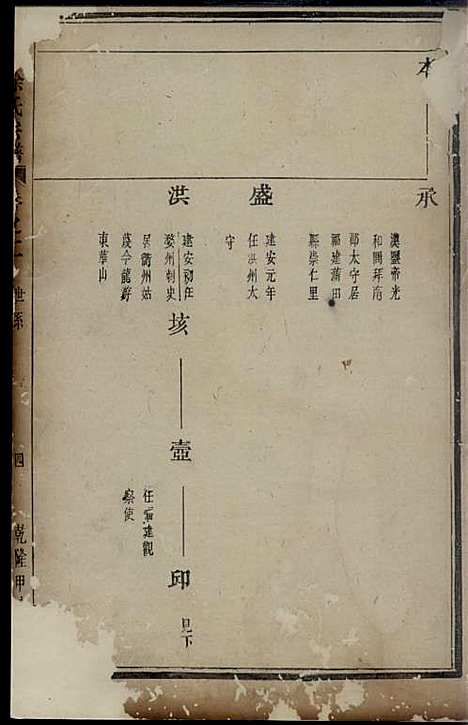 本
承
漢靈帝光
和間拜南
郡太守居
福建莆田
縣崇仁里
盛
建安元年
任洪州太
守
洪
建安初任
婺州刺史
居衢州姑
蔑今龍游
東華山
垓
壺
任福建觀
察使
邱
見下
徐氏宗譜
卷之二 世系
四
乾隆甲